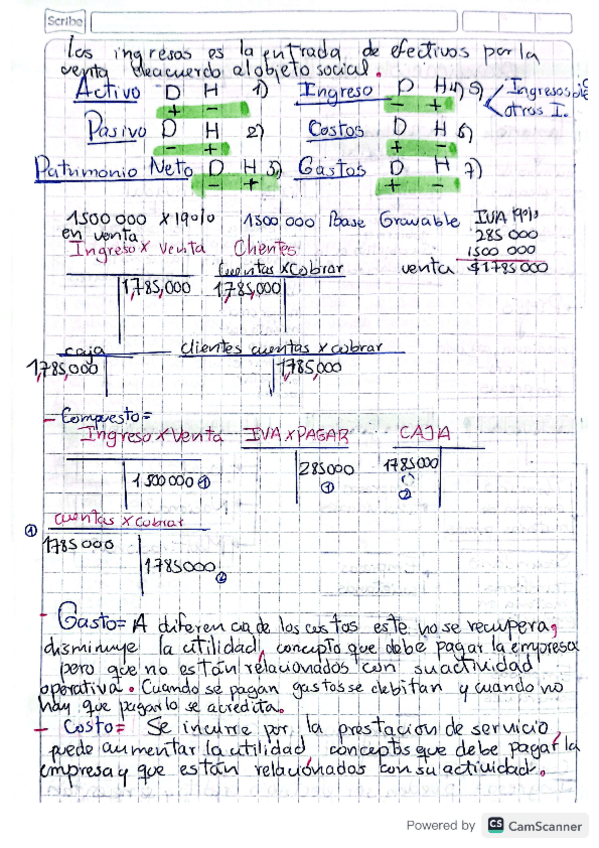 Scribe
Los ingresos es la entrada de efectivos por la
venta deacuerdo al objeto social.
Activo D H 1) Ingreso D H 4) 5) Ingresos de
+ - - + otros I.
Pasivo D H 2) Costos D H 6)
- + + -
Patrimonio Neto D H 3) Gastos D H 7)
- + + -
1500 000 x 19% 1500 000 Base Gravable IVA 19%
en venta 285 000
Ingreso x Venta Clientes 1500 000
Cuentas x Cobrar venta $1785 000
1,785,000 1,785,000
caja clientes cuentas x cobrar
1,785,000 1,785,000
- Compuesto=
Ingreso x Venta IVA x PAGAR CAJA
1 500 000 ① 285000 1785 000
① ②
cuentas x cobrar
① 1785 000
1785000 ②
- Gasto= A diferencia de los costos este no se recupera,
disminuye la utilidad, concepto que debe pagar la empresa
pero que no están relacionados con su actividad
operativa. Cuando se pagan gastos se debitan y cuando no
hay que pagarlo se acredita.
- Costo= Se incurre por la prestacion de servicio,
puede aumentar la utilidad, conceptos que debe pagar la
empresa y que están relacionados con su actividad.
Powered by CS CamScanner